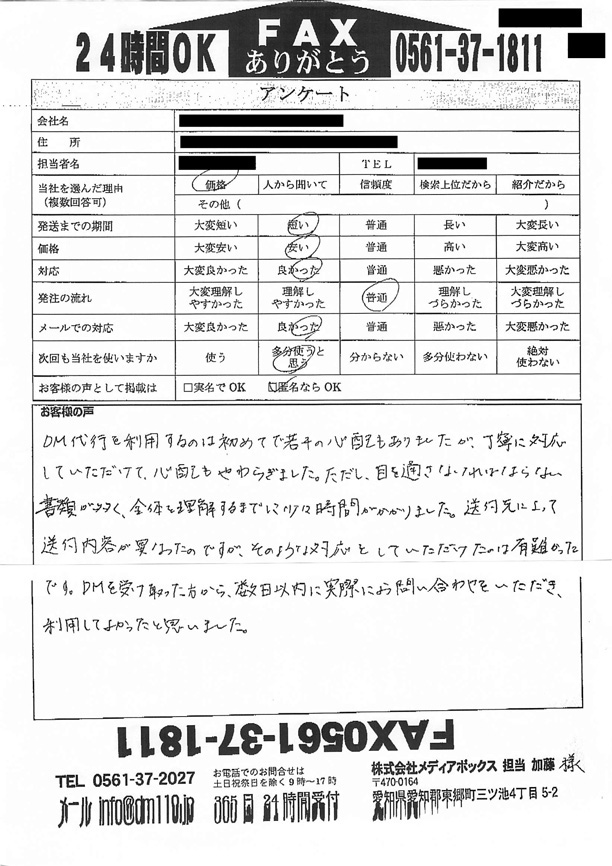 24時間OK FAX ありがとう 0561-37-1811
アンケート
会社名
住　所
担当者名 TEL
当社を選んだ理由（複数回答可） 価格 人から聞いて 信頼度 検索上位だから 紹介だから
その他（ ）
発送までの期間 大変短い 短い 普通 長い 大変長い
価格 大変安い 安い 普通 高い 大変高い
対応 大変良かった 良かった 普通 悪かった 大変悪かった
発注の流れ 大変理解しやすかった 理解しやすかった 普通 理解しづらかった 大変理解しづらかった
メールでの対応 大変良かった 良かった 普通 悪かった 大変悪かった
次回も当社を使いますか 使う 多分使うと思う 分からない 多分使わない 絶対使わない
お客様の声として掲載は □実名でOK □匿名ならOK
お客様の声
DM代行を利用するのは初めてで若干の心配もありましたが、丁寧に対応
していただけて、心配もやわらぎました。ただし、目を通さなければならない
書類が多く、全体を理解するまでに少々時間がかかりました。送付先によって
送付内容が異なったのですが、そのような対応をしていただけたのは有難かった
です。DMを受け取った方から、数日以内に実際にお問い合わせをいただき、
利用してよかったと思いました。
FAX0561-37-1811
TEL 0561-37-2027 お電話でのお問合せは土日祝祭日を除く9時～17時
メール info@dm110.jp 365日 24時間受付
株式会社メディアボックス 担当 加藤 様
〒470-0164
愛知県愛知郡東郷町三ツ池4丁目5-2